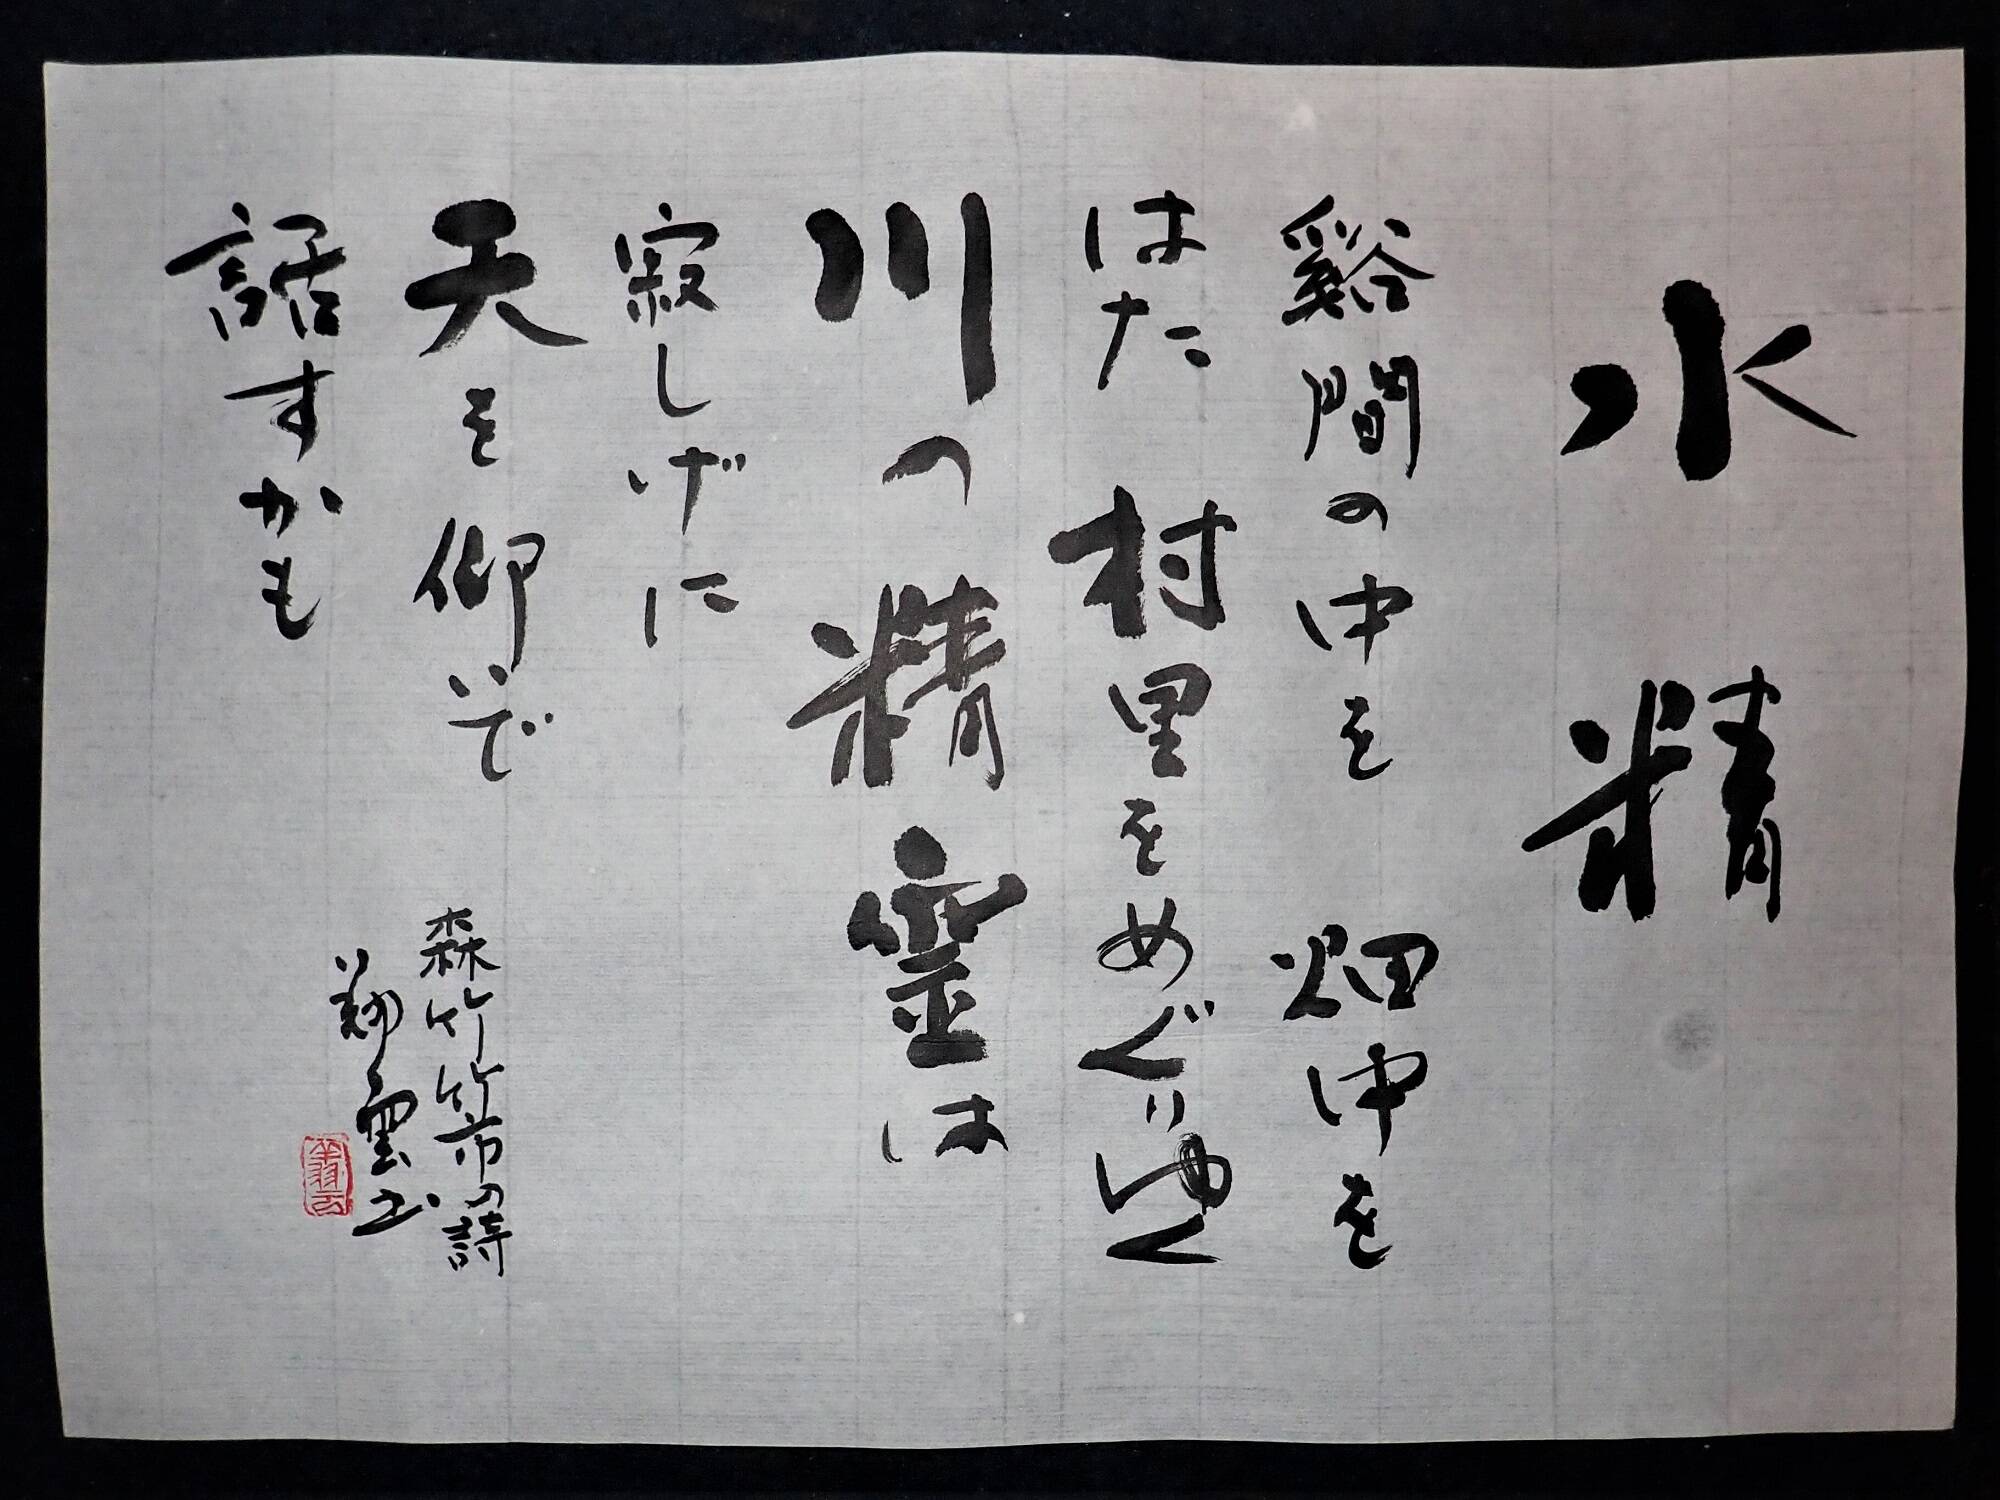 水精
谿間の中を 畑中を
はた 村里をめぐりゆく
川の精霊は
寂しげに
天を仰いで
話すかも
森竹竹市の詩
翔雲書